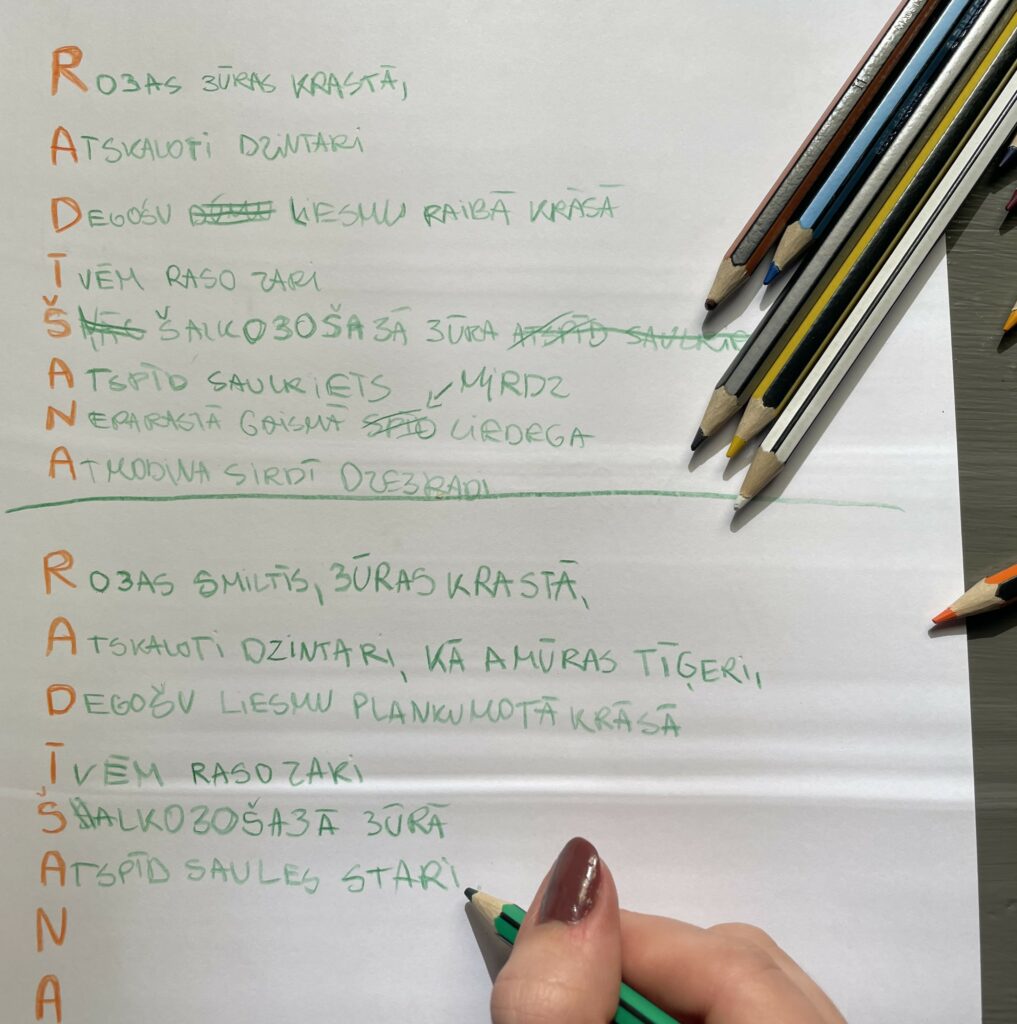 ROJAS JŪRAS KRASTĀ,
ATSKALOTI DZINTARI
DEGOŠU LIESMU RAIBĀ KRĀSĀ
ĪVĒM RASO ZARI
ŠALKOJOŠAJĀ JŪRA ATSPĪD SAULRIE
ATSPĪD SAULRIETS MIRDZ
NEPARASTĀ GAISMĀ SPĪD LIEDEGA
ATMODINA SIRDĪ DZEJRADI
ROJAS SMILTĪS, JŪRAS KRASTĀ,
ATSKALOTI DZINTARI, KĀ AMŪRAS TĪĢERI,
DEGOŠU LIESMU PLANKUMOTĀ KRĀSĀ
ĪVĒM RASO ZARI
ŠALKOJOŠAJĀ JŪRĀ
ATSPĪD SAULES STARI
N
A